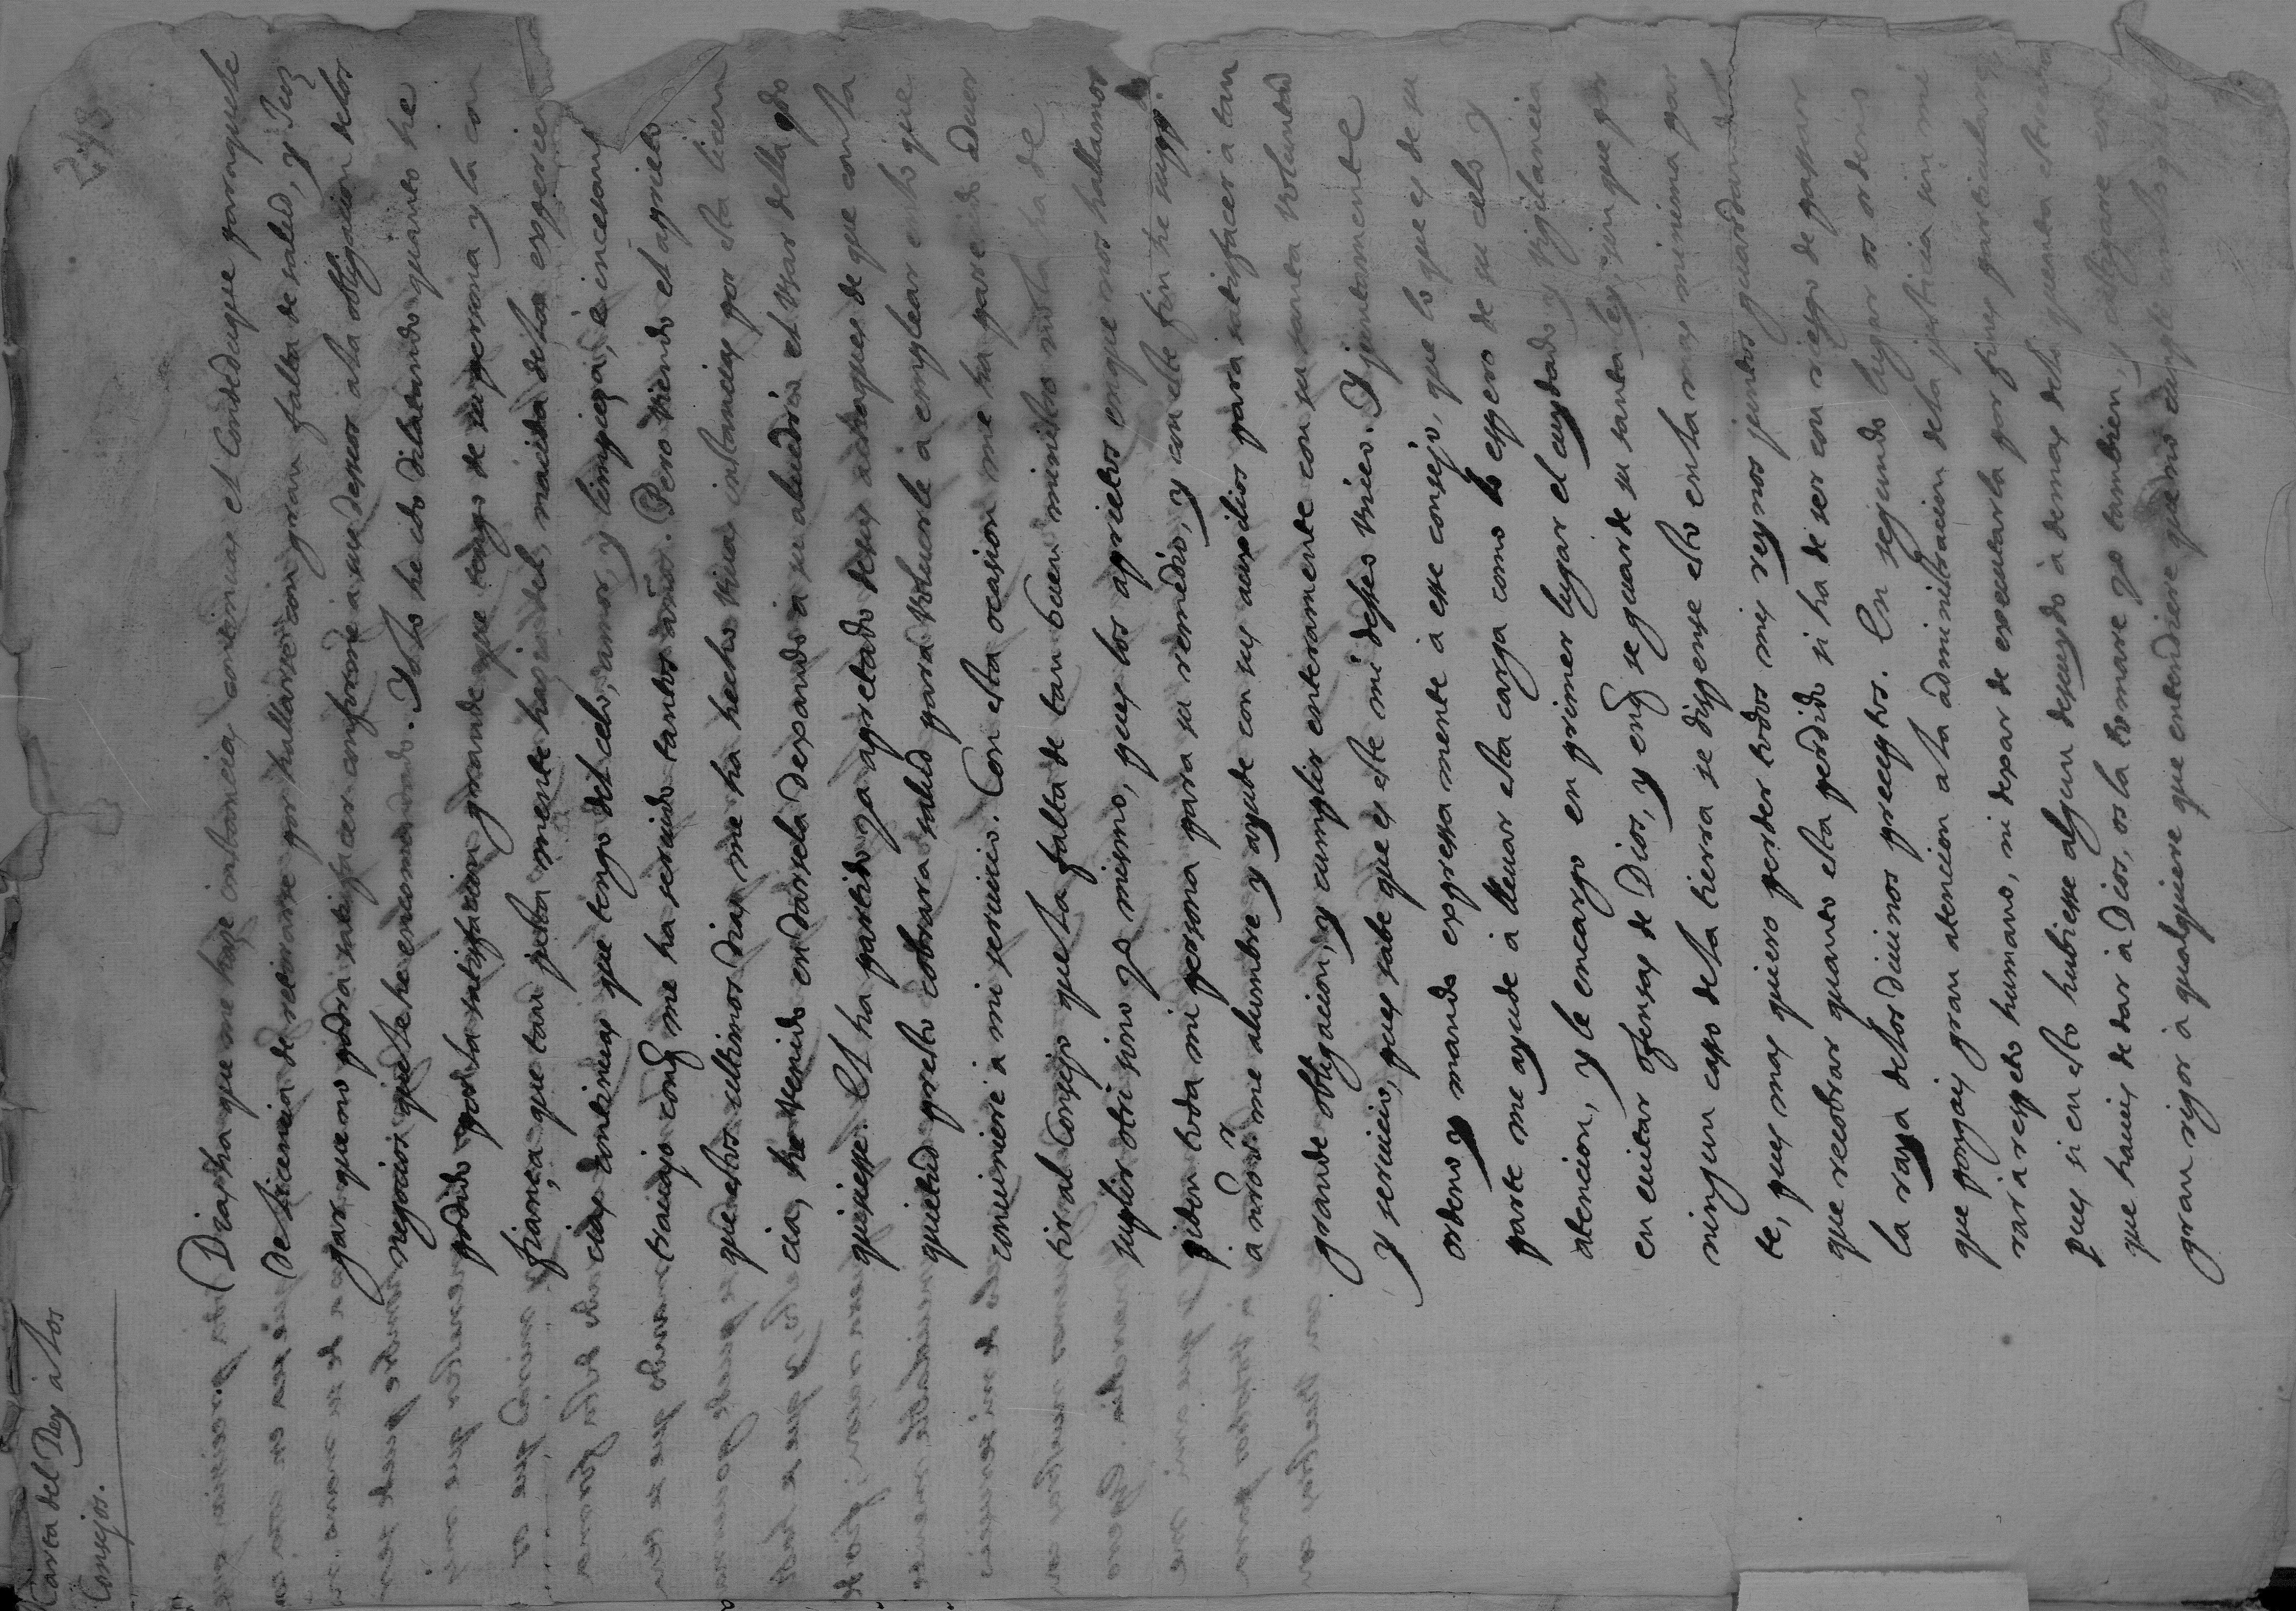 248
Carta del Rey à los
Consejos.
Dias ha que me haze instancias continuas el Conde duque paraque le
de licencia de retirarse por hallarse con gran falta de salud, y Juz
gar que no podra satisfacer conforme a sus deseos a la obligacion de los
negocios que le he encomendado. Yo lo he ido dilatando quanto he
podido por la satisfacion grande que tengo de su persona y la con
fiança que tan justa mente hazia del, nacida de las experien
cias continuas que tengo del celo, amor, y limpieza, è incesante
trauajo con q me ha seruido tantos años. Pero viendo el aprieto
que estos ultimos dias me ha hecho viuas instancias por esta licen
cia, he venido en darsela dexando a su aluedrio el usar della q̄do
quisiesse. El ha partido ya apretado de sus achaques de que con la
quietud presto cobrara salud para boluerle a emplear en lo que
conuiniere a mi seruicio. Con esta ocasion me ha parecido aduer
tir al Consejo que la falta de tan buen ministro no la ha de
suplir otri sino yo mismo, pues los aprietos en que nos hallamos
piden toda mi persona para su remedio, y con este fin he supp.do
a nr̄o s.r me alumbre y ayude con sus auxilios para satisfacer a tan
grande obligacion, y cumplir enteramente con su santa voluntad
y seruicio, pues sabe que es este mi desseo vnico. Y juntamente
ordeno y mando expressamente à esse consejo, que lo que es de su
parte me ayude à lleuar esta carga como lo espero de su celo y
atencion, y le encargo en primer lugar el cuydado y vigilancia
en euitar ofensas de Dios, y en q se guarde su santa ley, sin que por
ningun caso de la tierra se dispense esto en la mas minima par
te, pues mas quiero perder todos mis reynos juntos guardando
que recobrar quanto esta perdido si ha de ser con riesgo de passar
la raya de los diuinos preceptos. En segundo lugar os ordeno
que pongais gran atencion a la administracion de la justicia sin mi
rar a respeto humano, ni dexar de executarla por fines particulares,
pues si en esto hubiesse algun descuydo à demas de la quenta estrecha
que haueis de dar à Dios, os la tomare yo tambien, y castigare con
gran rigor à qualquiere que entendiere que no cumple con lo que